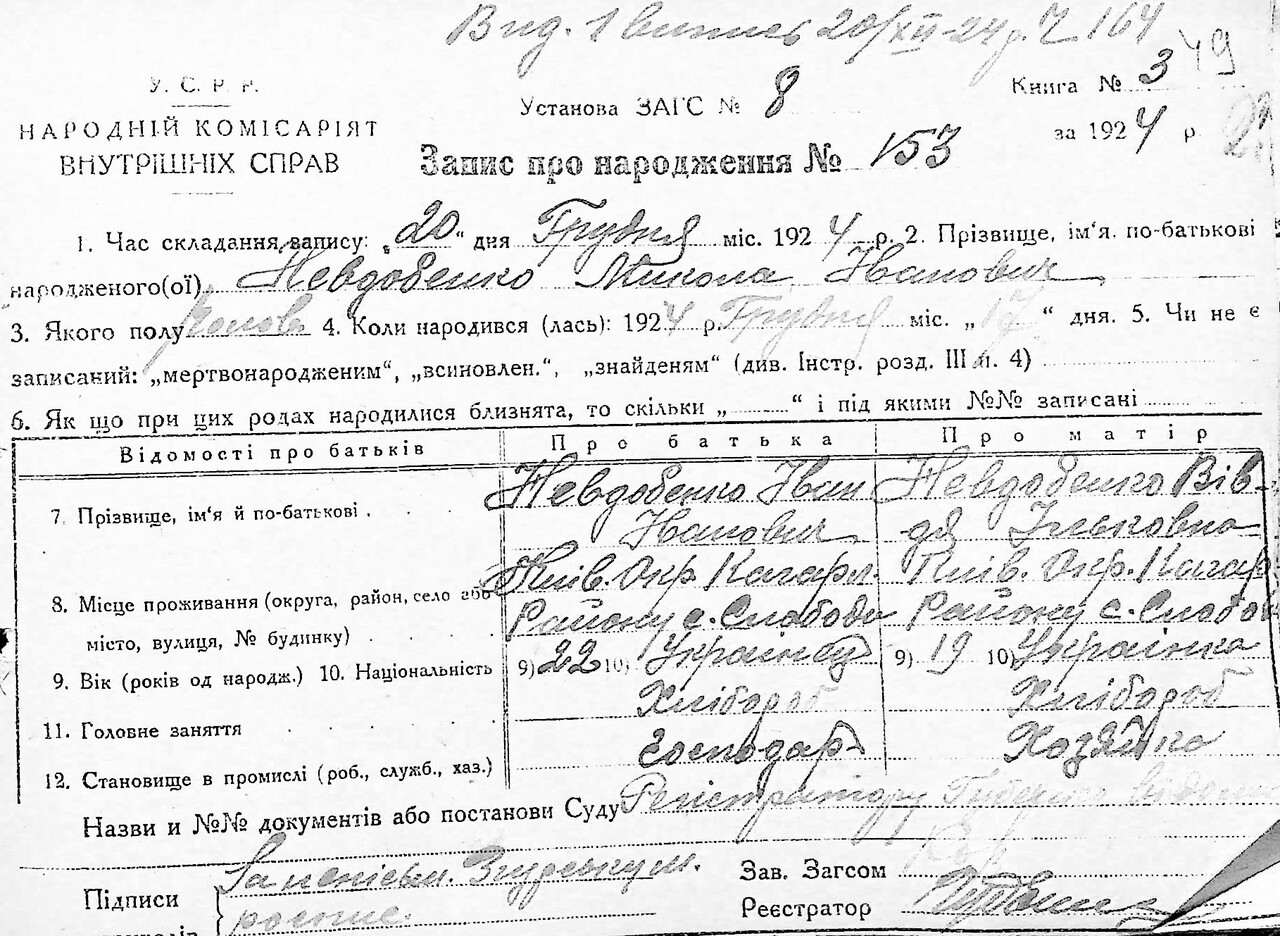 Вид. 1 випись 20/XII-24 р. Ч 164
У. С. Р. Р.
НАРОДНІЙ КОМІСАРІЯТ
ВНУТРІШНІХ СПРАВ
Установа ЗАГС № 8
Книга № 3
за 1924 р.
Запис про народження № 153
1. Час складання запису: „20“ дня Грудня міс. 1924 р. 2. Прізвище, ім'я, по-батькові
народженого(ої) Невдобенко Микола Іванович
3. Якого полу 4. Коли народився (лась): 1924 р. Грудня міс. „17“ дня. 5. Чи не є
записаний: „мертвонародженим“, „всиновлен.“, „знайденям“ (див. Інстр. розд. III п. 4)
6. Як що при цих родах народилися близнята, то скільки „ “ і під якими №№ записані
Відомості про батьків Про батька Про матір
7 Прізвище, ім'я й по-батькові . Невдобенко Іван Невдобенко Вів-
Іванович дя Ільковна
8. Місце проживання (округа, район, село або Київ. Окр. Кагарл. Київ. Окр. Кагар
місто, вулиця, № будинку) Району с. Слободи Району с. Слобод
9. Вік (років од народж.) 10. Національність 9) 22 10) Українець 9) 19 10) Українка
11. Головне заняття Хлібороб Хлібороб
12. Становище в промислі (роб., служб., хаз.) господар Хозяйка
Назви и №№ документів або постанови Суду
Підписи
Зав. Загсом
Реєстратор